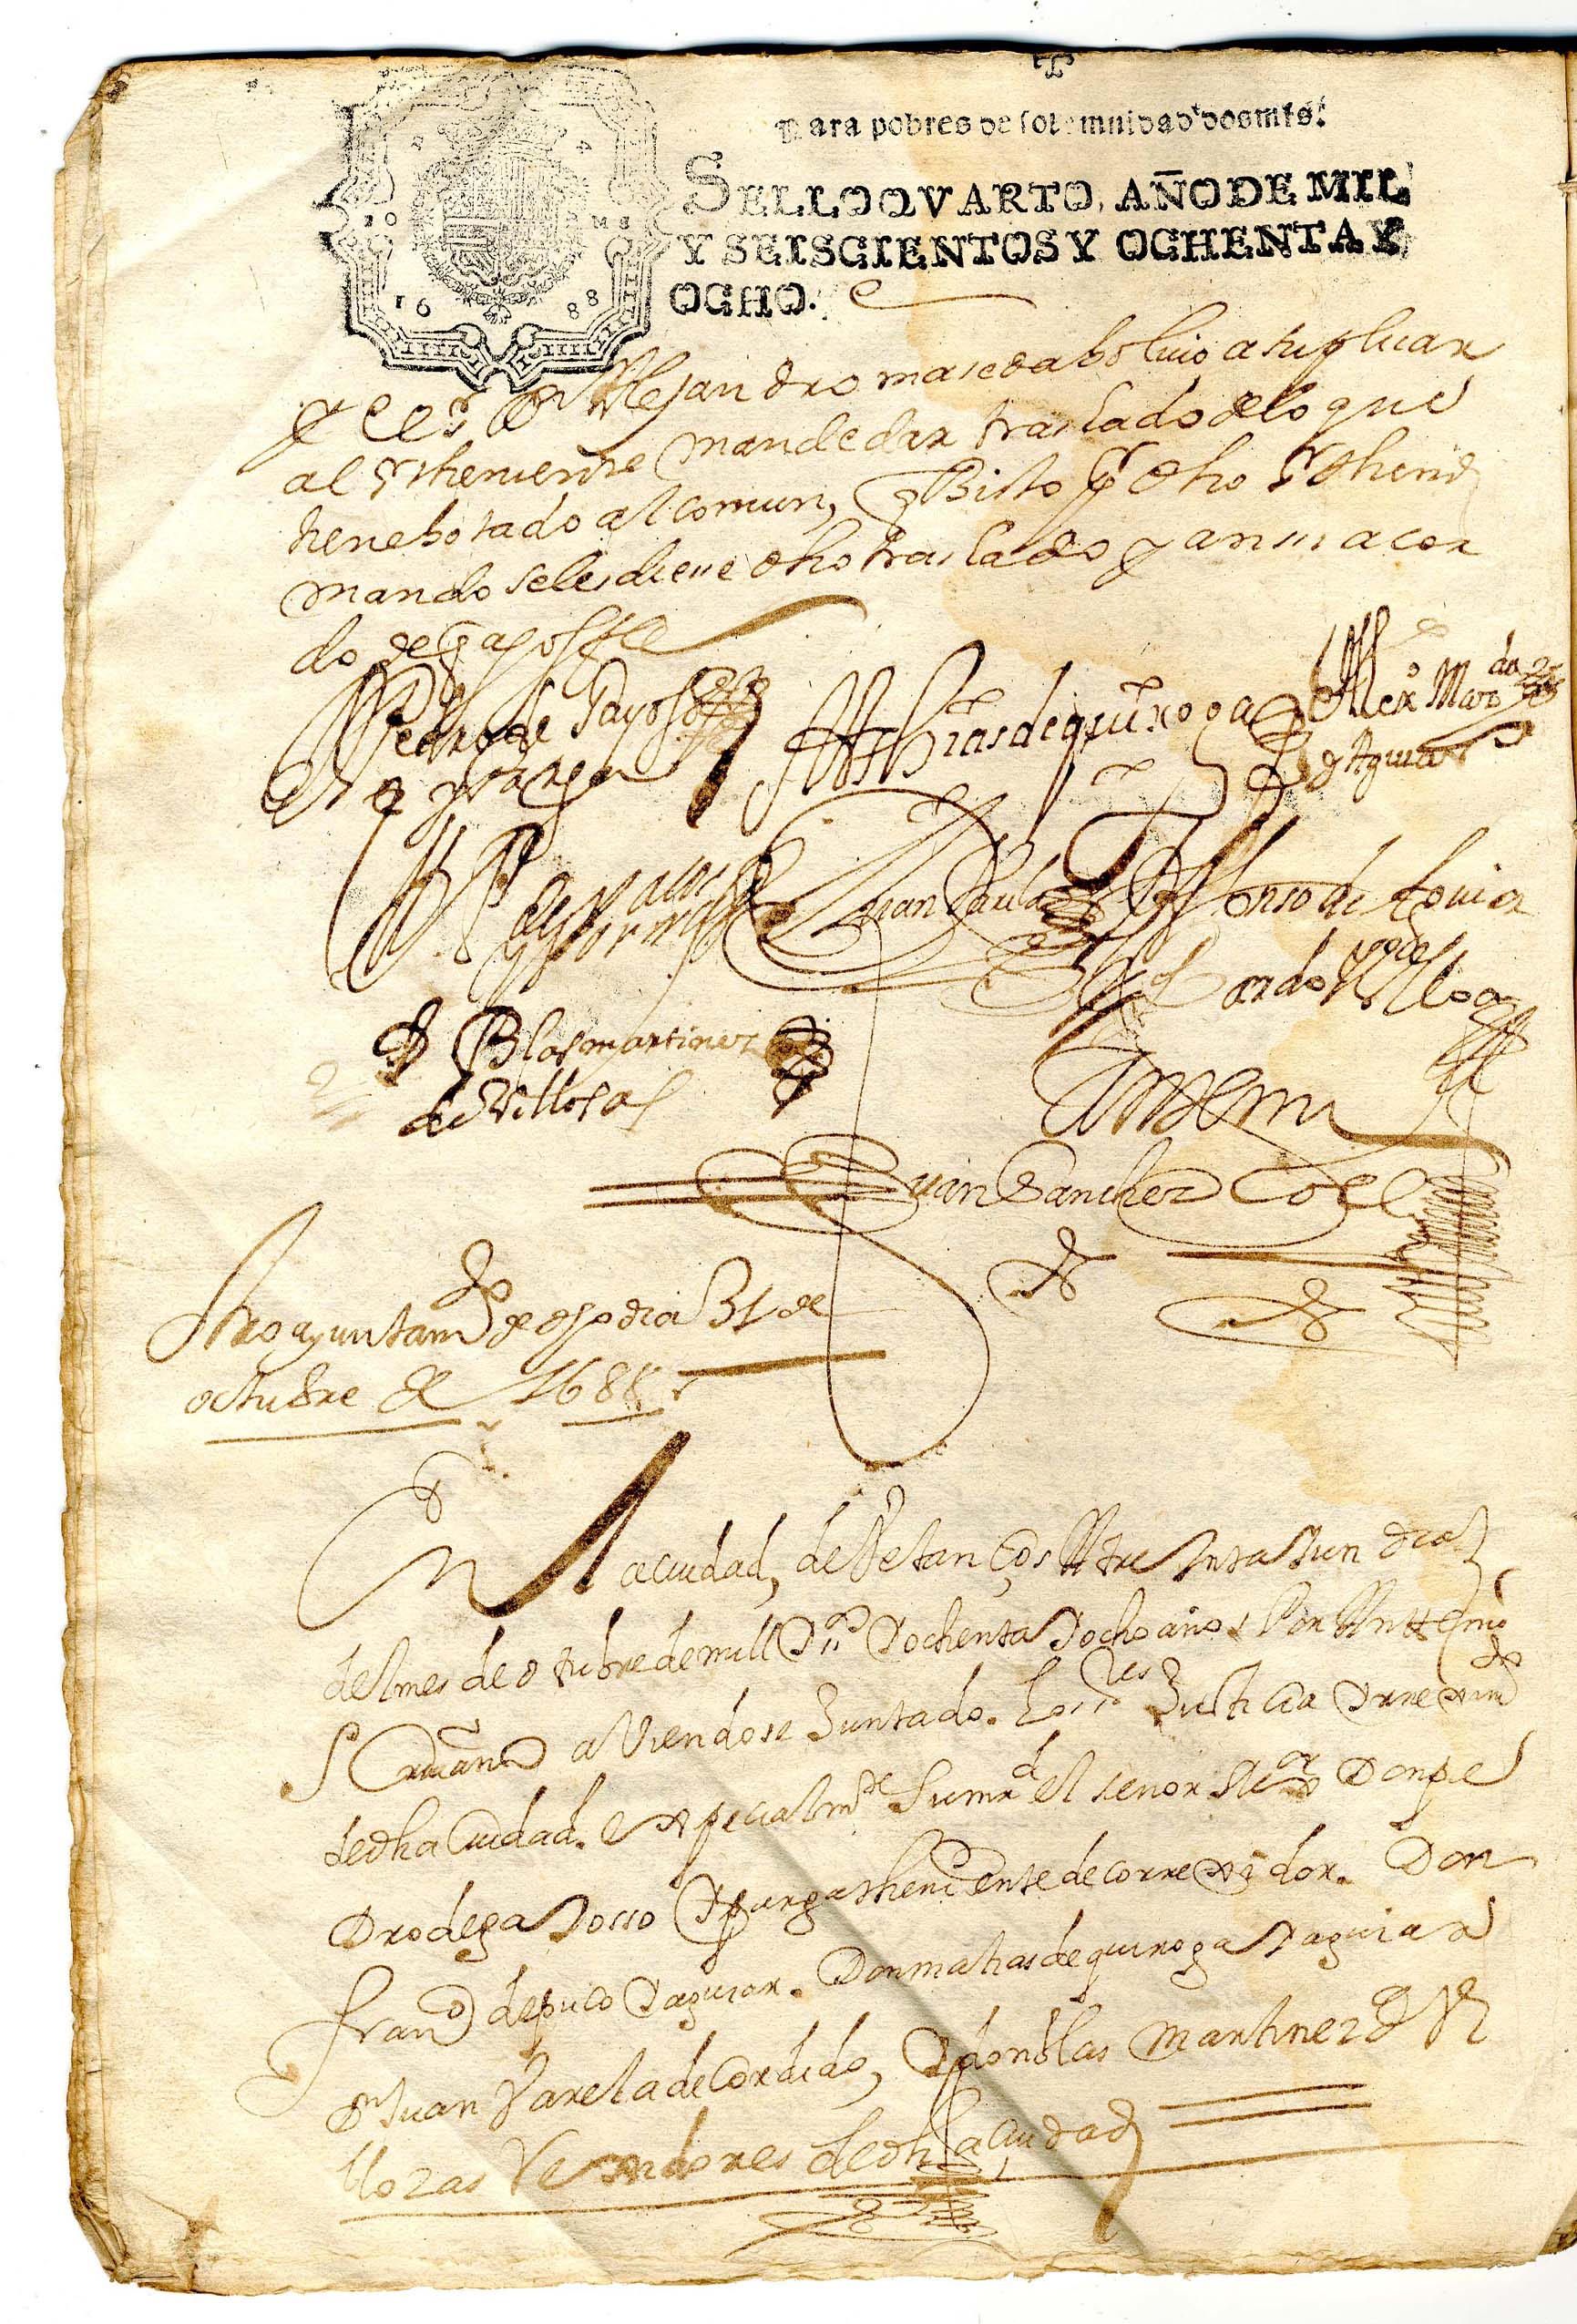 Para pobres de solemnidad dos mrs.
SELLO QVARTO, AÑO DE MIL
Y SEISCIENTOS Y OCHENTA Y
OCHO.
10 MS
1688
Y el sr Dn Alejandro maseda bolbio a suplicar
al sr theniente mande dar traslado de lo que
tiene botado al comun, y Bisto Pr dho sr theni
mando se les diese dho traslado y ansi acor
do
Pedro de Gayoso
Mathias de quiroga
Alexo Marda
y Aguiar
Juan Varela
Alonso de
Blas martinez
de Villozas
Antemi
Juan Sanchez
ayuntamto de oy dia 31 de
octubre de 1688
En la ciudad, de Vetanços A treinta Y un dias
del mes de otubre de mill Y ssos Y ochenta Y ocho años Por Antte mi
sscrivano aViendose Juntado. Los sres Justicia Y rreximto
de dha Ciudad. Expecialmte Su mrd el señor lizdo Don pe
Dro de ga Yosso Y theniente de correxidor. Don
Franco de puço Y aguiar. Don matias de quiroga Y aguiar
Dn Juan Varela de Cordido, Y don blas Martinez de Vi
llozas Rexidores de dha ciudad